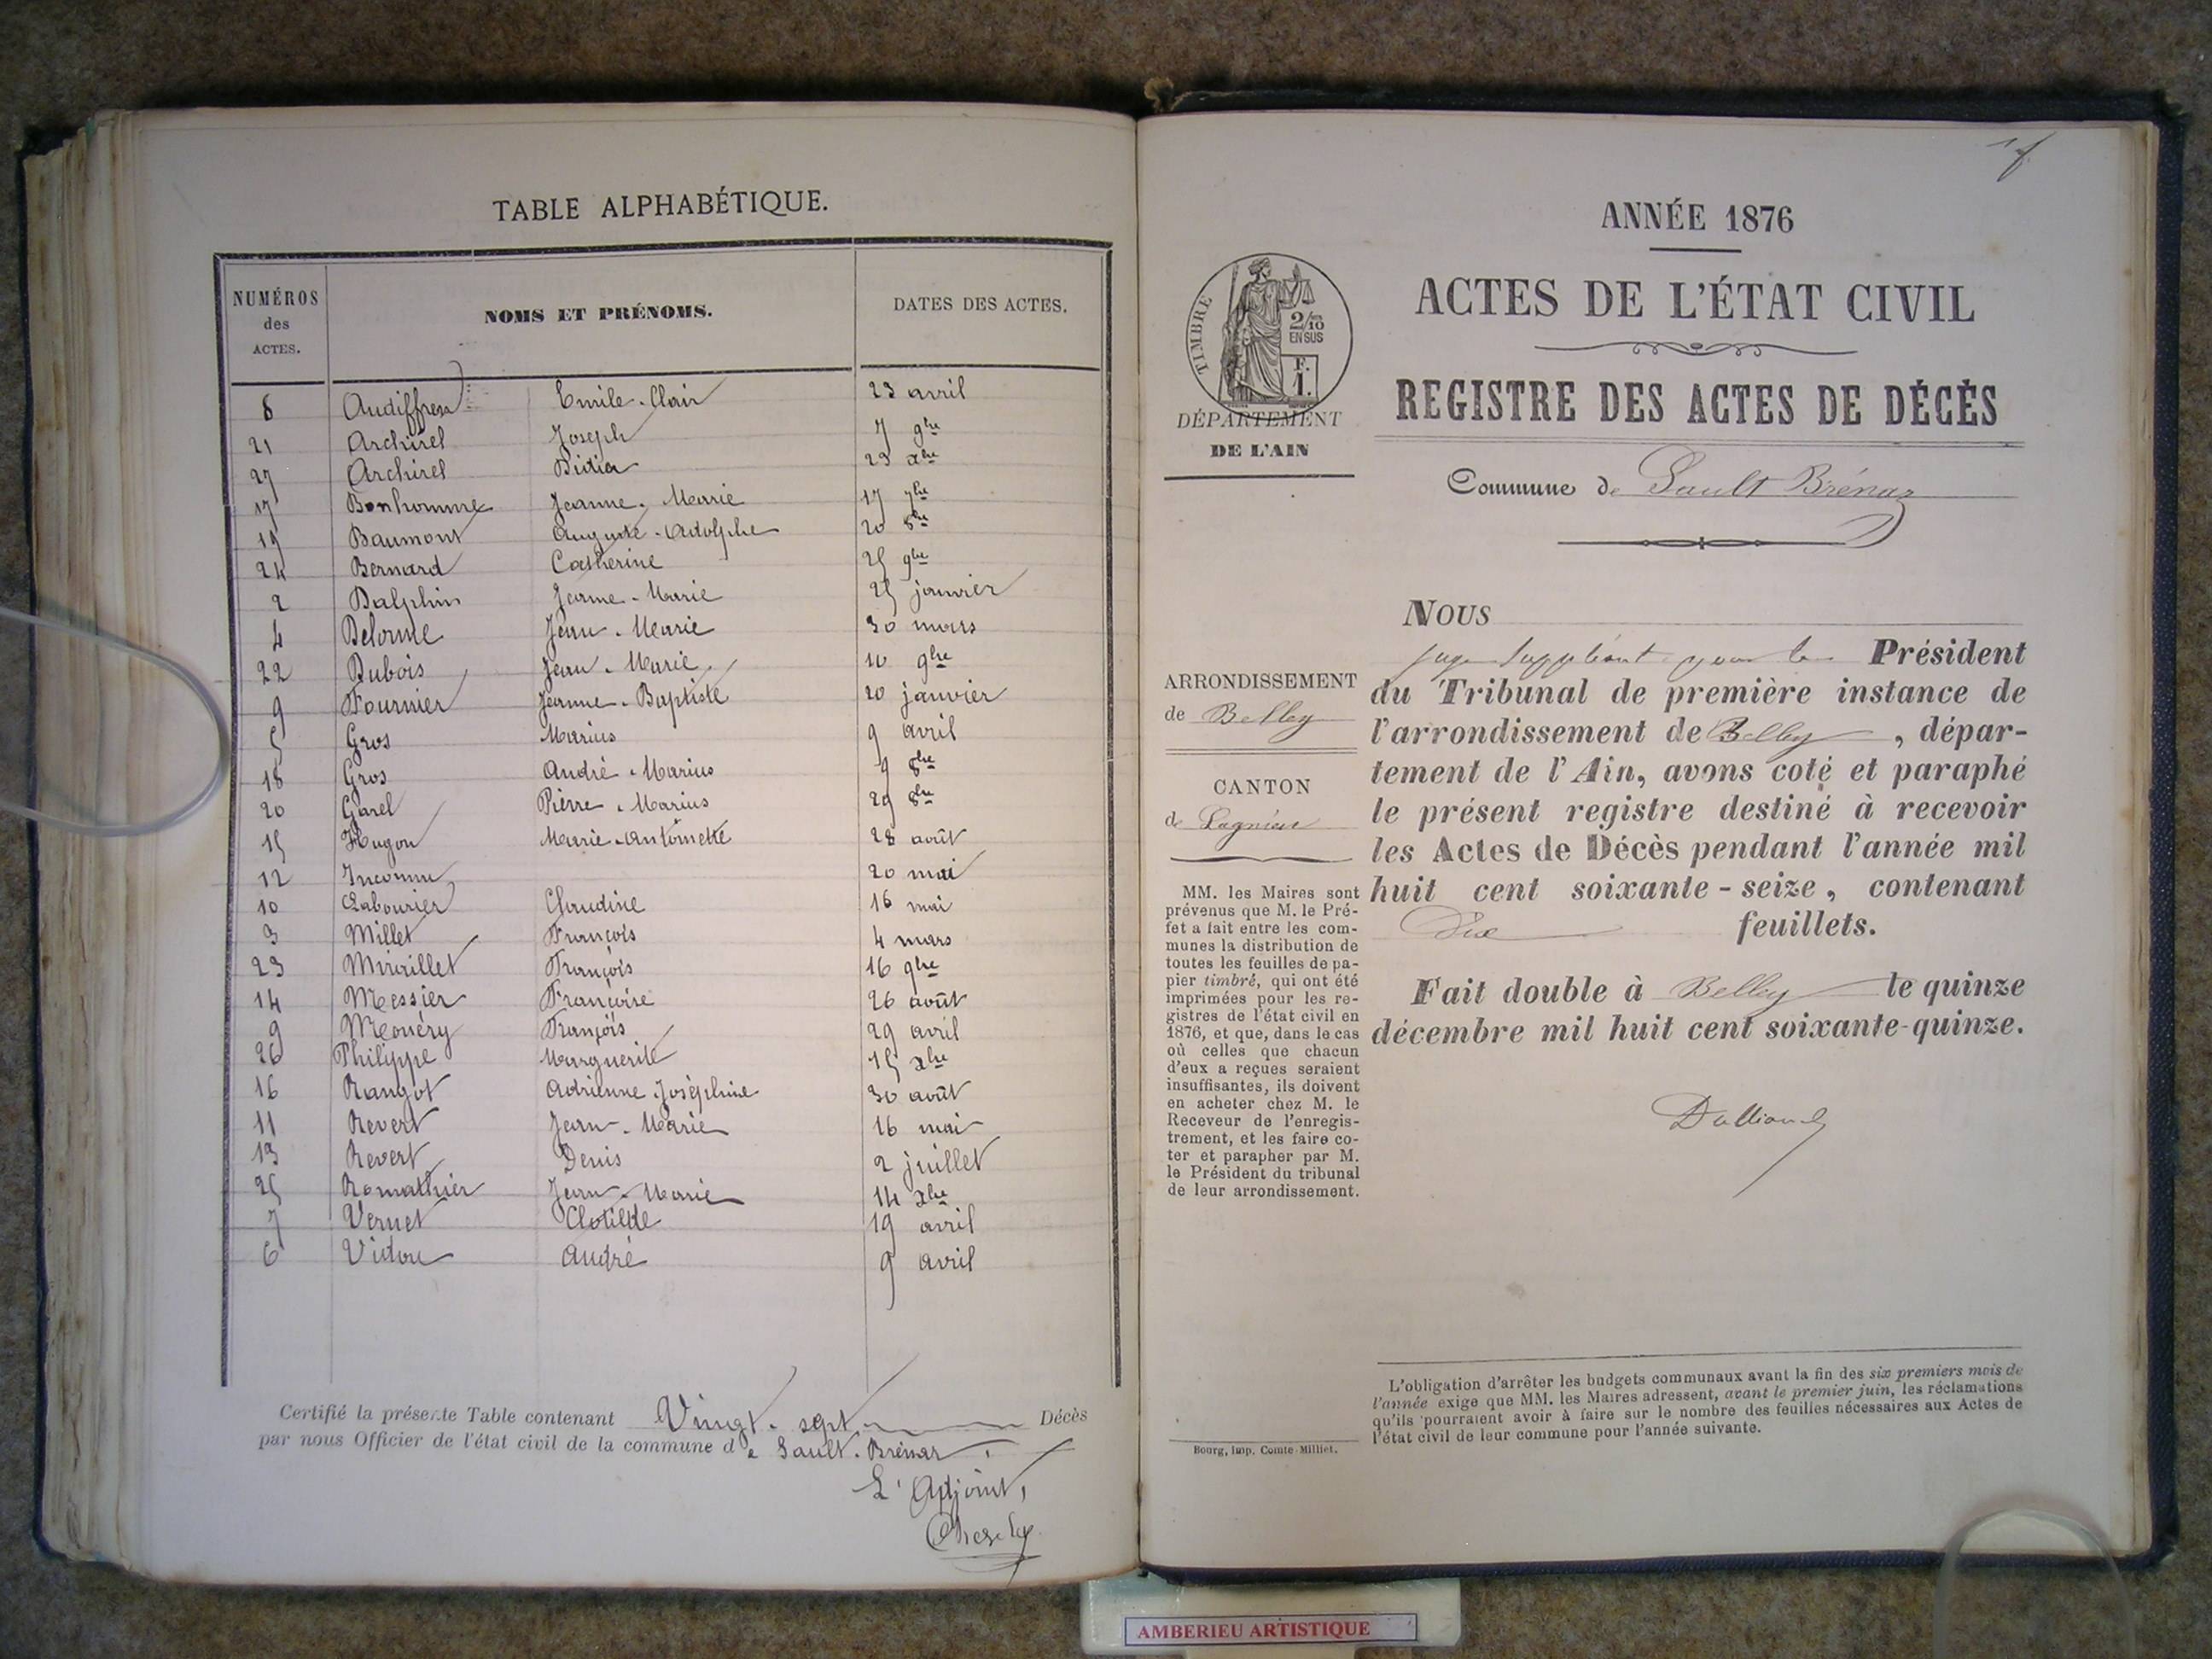 TABLE ALPHABÉTIQUE.
NUMÉROS des ACTES. NOMS ET PRÉNOMS. DATES DES ACTES.
8 Audiffren Emile-Clair 23 avril
21 Archirel Joseph 7 9bre
27 Archirel Didier 29 xbre
17 Bonhomme Jeanne-Marie 17 7bre
19 Baumont Auguste-Adolphe 20 8bre
24 Bernard Catherine 25 9bre
2 Dalphin Jeanne-Marie 25 janvier
4 Delorme Jean-Marie 30 mars
22 Dubois Jean-Marie 10 9bre
9 Fournier Jeanne-Baptiste 20 janvier
5 Gros Marius 9 avril
18 Gros André-Marius 9 8bre
20 Garel Pierre-Marius 29 8bre
15 Hugon Marie-Antoinette 28 août
12 Inconnu 20 mai
10 Labourier Claudine 16 mai
3 Millet François 4 mars
23 François 16 9bre
14 Messier Françoise 26 août
9 François 29 avril
26 Philippe Marguerite 15 xbre
16 Rangot Adrienne-Joséphine 30 août
11 Revert Jean-Marie 16 mai
13 Revert Denis 2 juillet
25 Romathier Jean-Marie 14 xbre
7 Vernet Clotilde 19 avril
6 André 9 avril
Certifié la présente Table contenant Vingt-sept Décès
par nous Officier de l'état civil de la commune de Sault-Brénaz.
L'Adjoint,
ANNÉE 1876
ACTES DE L'ÉTAT CIVIL
REGISTRE DES ACTES DE DÉCÈS
Commune de Sault Brénaz
TIMBRE
2/10
EN SUS
F.
1.
DÉPARTEMENT
DE L'AIN
ARRONDISSEMENT
de Belley
CANTON
de Lagnieu
MM. les Maires sont
prévenus que M. le Pré-
fet a fait entre les com-
munes la distribution de
toutes les feuilles de pa-
pier timbré, qui ont été
imprimées pour les re-
gistres de l'état civil en
1876, et que, dans le cas
où celles que chacun
d'eux a reçues seraient
insuffisantes, ils doivent
en acheter chez M. le
Receveur de l'enregis-
trement, et les faire co-
ter et parapher par M.
le Président du tribunal
de leur arrondissement.
Bourg, imp. Comte-Milliet.
NOUS
juge suppléant pour le Président
du Tribunal de première instance de
l'arrondissement de Belley, dépar-
tement de l'Ain, avons coté et paraphé
le présent registre destiné à recevoir
les Actes de Décès pendant l'année mil
huit cent soixante-seize, contenant
Dix feuillets.
Fait double à Belley le quinze
décembre mil huit cent soixante-quinze.
L'obligation d'arrêter les budgets communaux avant la fin des six premiers mois de
l'année exige que MM. les Maires adressent, avant le premier juin, les réclamations
qu'ils pourraient avoir à faire sur le nombre des feuilles nécessaires aux Actes de
l'état civil de leur commune pour l'année suivante.
AMBERIEU ARTISTIQUE